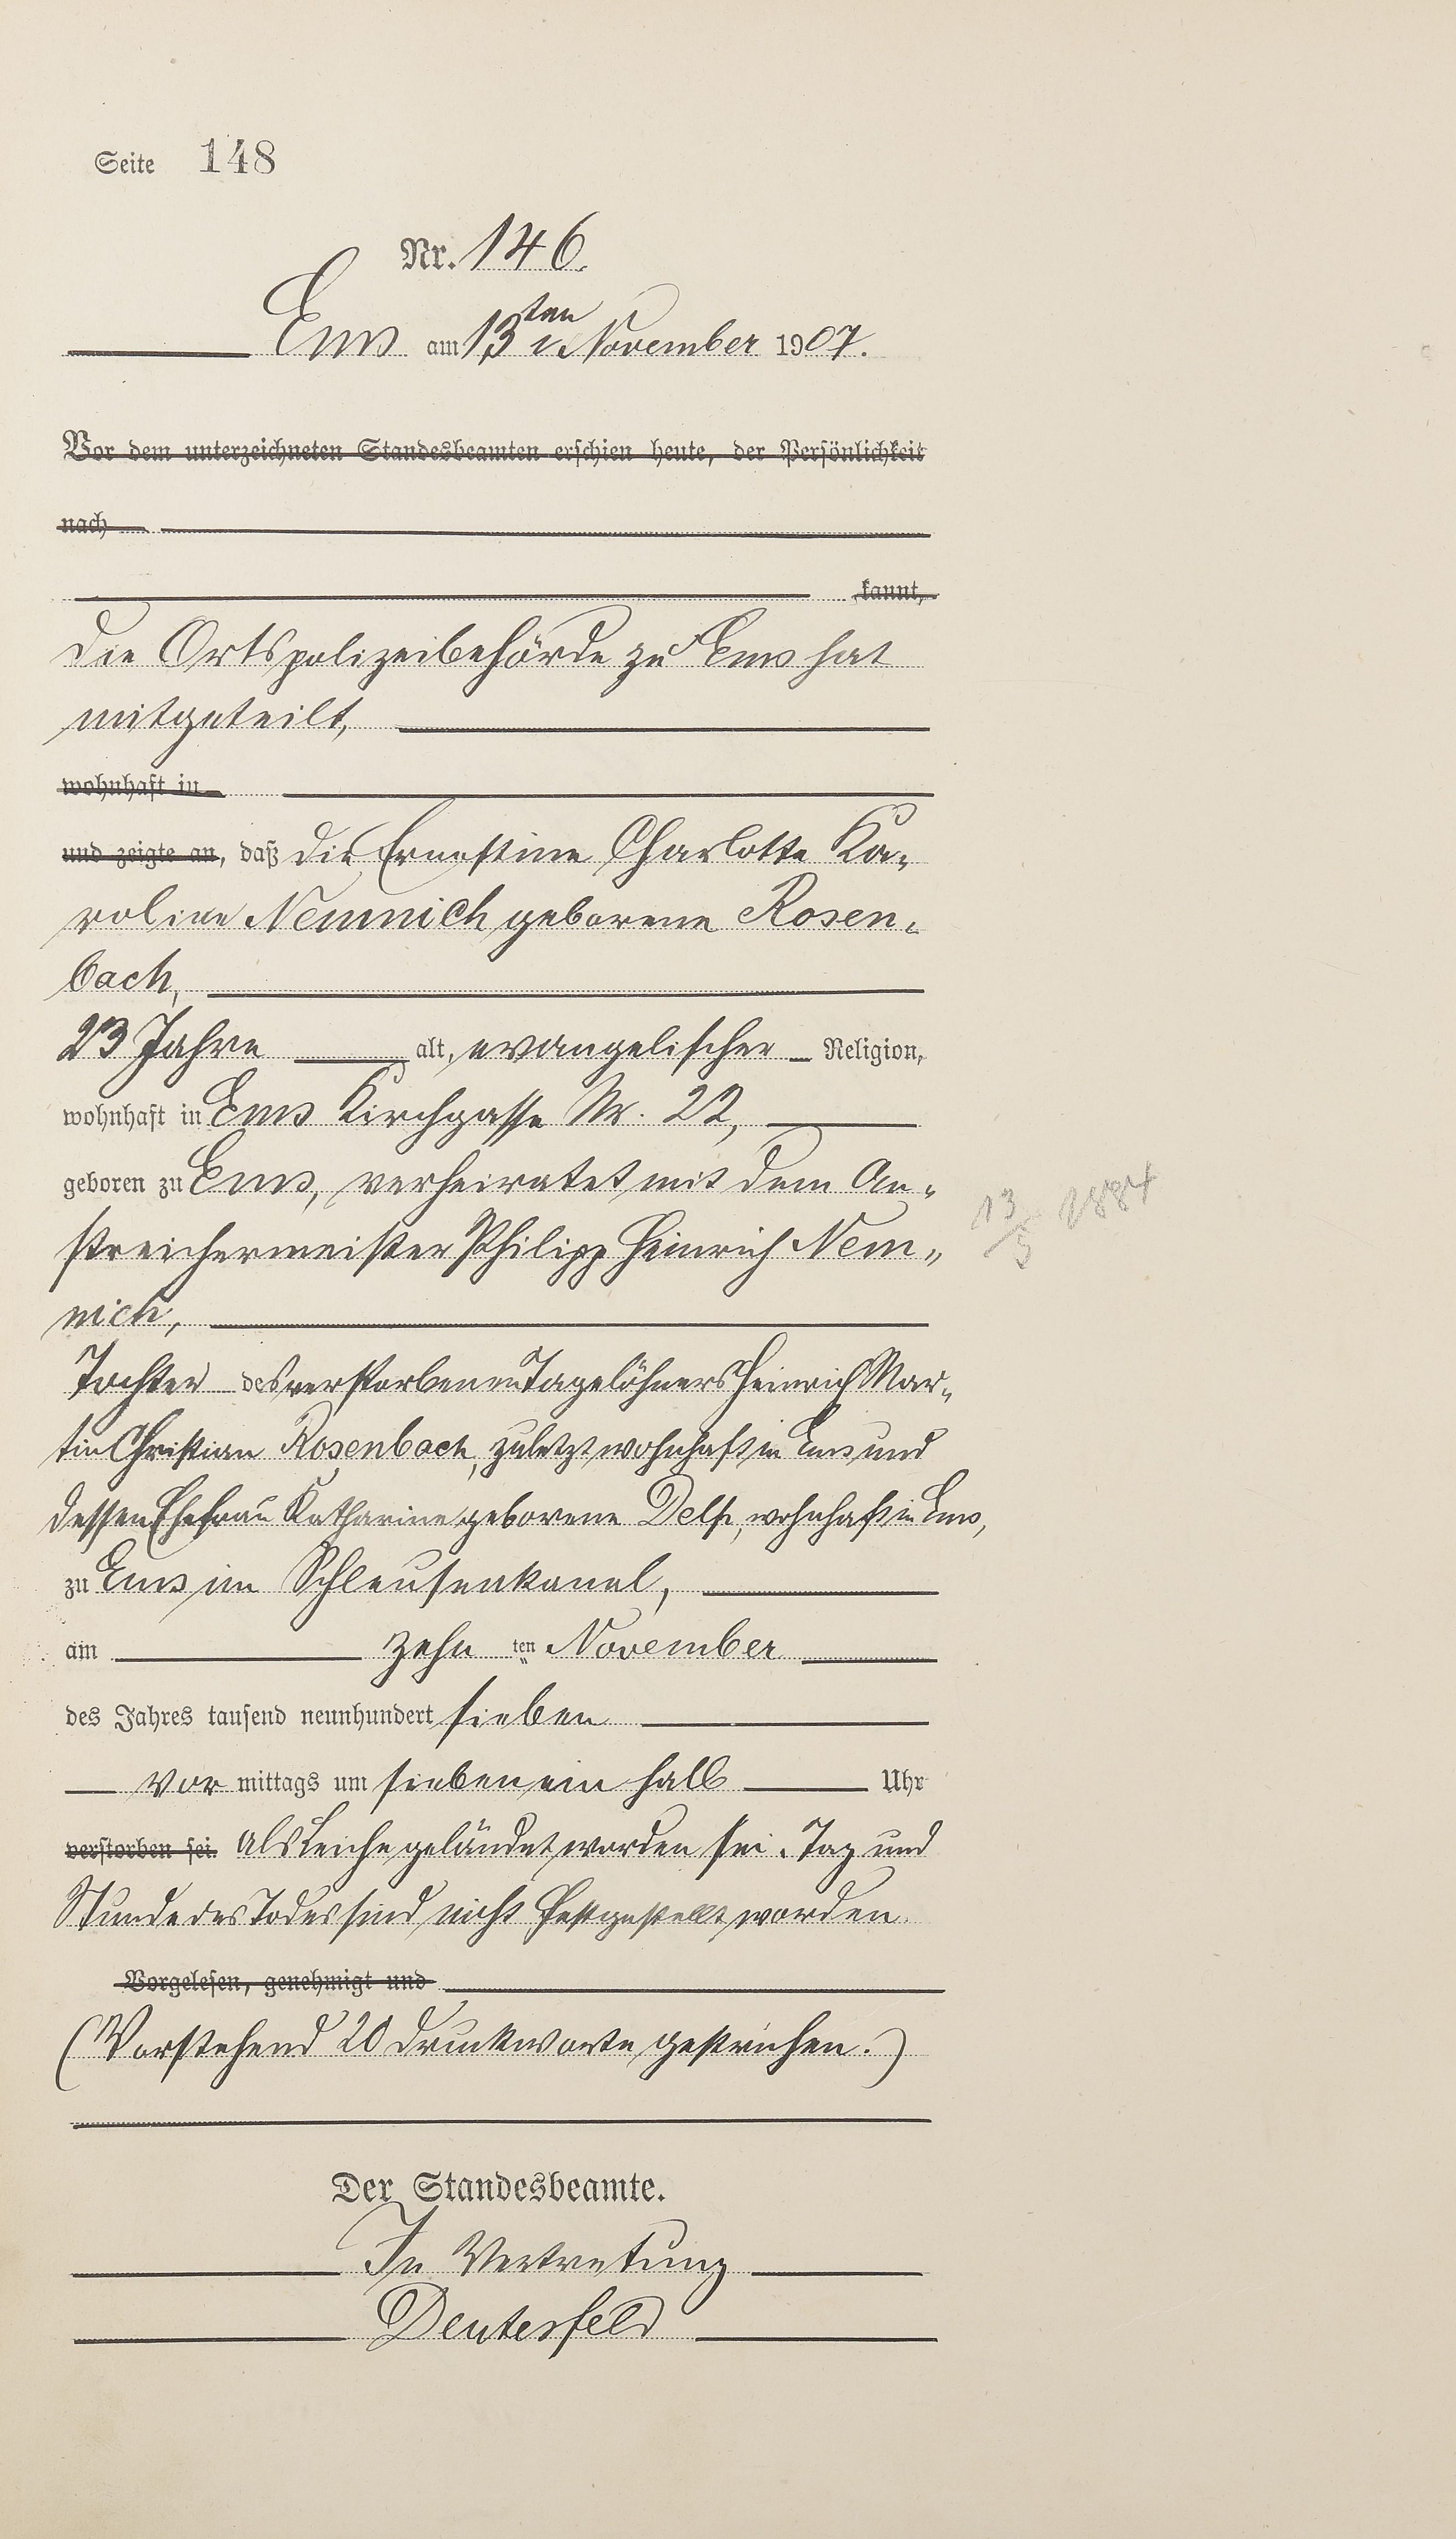 Seite 148
Nr. 146.
Ems am 13ten November 1907.
Vor dem unterzeichneten Standesbeamten erschien heute, der Persönlichkeit
nach
kannt,
Die Ortspolizeibehörde zu Ems hat
mitgeteilt,
wohnhaft in
und zeigte an, daß die Ernestine Charlotte Ka-
roline Nemnich geborene Rosen-
bach,
23 Jahre alt, evangelischer Religion,
wohnhaft in Ems Kirchgasse Nr. 22,
geboren zu Ems, verheiratet mit dem An-
13/5 1884
streichermeister Philipp Heinrich Nem-
nich,
Tochter des verstorbenen Tagelöhners Heinrich Mar-
tin Christian Rosenbach, zuletzt wohnhaft in Ems und
dessen Ehefrau Katharine geborene wohnhaft in Ems,
zu Ems im Schleusenkanal,
am zehn ten November
des Jahres tausend neunhundert sieben
Vor mittags um sieben ein halb Uhr
verstorben sei. als Leiche geländet worden sei. Tag und
Stunde des Todes sind nicht festgestellt worden.
Vorgelesen, genehmigt und
(Vorstehend 20 Druckworte gestrichen.)
Der Standesbeamte.
In Vertretung
Deutesfeld